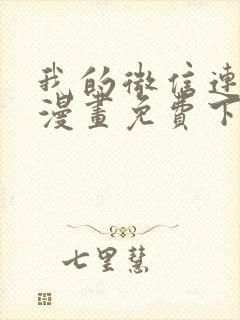 我的微信連
漫畫免費下
七里慧